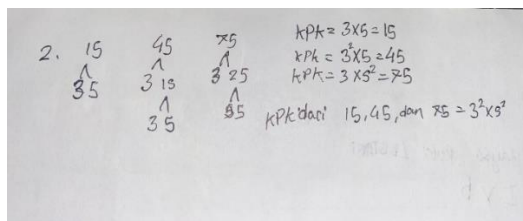 2. 15 45 75
3 5 3 15 3 25
3 5 5 5
KPK = 3x5 = 15
KPK = 3²x5 = 45
KPK = 3x5² = 75
KPK dari 15, 45, dan 75 = 3²x5²